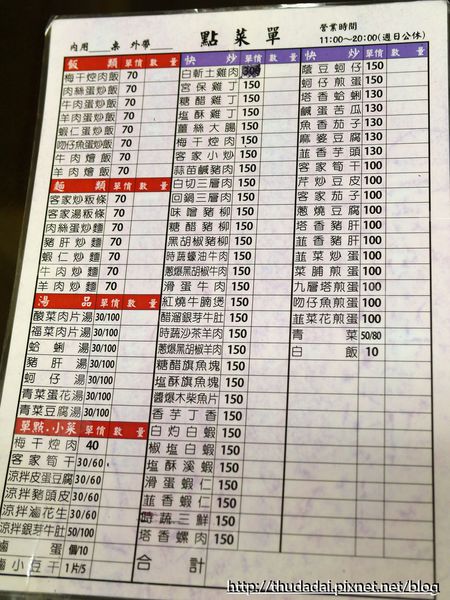 點菜單
內用 桌 外帶
營業時間
11:00~20:00(週日公休)
飯類 單價 數量
梅干焢肉飯 70
肉絲蛋炒飯 70
牛肉蛋炒飯 70
羊肉蛋炒飯 70
蝦仁蛋炒飯 70
吻仔魚蛋炒飯 70
牛肉燴飯 70
羊肉燴飯 70
麵類 單價 數量
客家炒粄條 70
客家湯粄條 70
肉絲蛋炒麵 70
豬肝炒麵 70
蝦仁炒麵 70
牛肉炒麵 70
羊肉炒麵 70
湯品 單價 數量
酸菜肉片湯 30/100
福菜肉片湯 30/100
蛤蜊湯 30/100
豬肝湯 30/100
蚵仔湯 30/100
青菜蛋花湯 30/100
青菜豆腐湯 30/100
單點.小菜 單價 數量
梅干焢肉 40
客家筍干 30/60
涼拌皮蛋豆腐 30/60
涼拌豬頭皮 30/60
涼拌滷花生 30/60
涼拌銀芽牛肚 50/100
滷蛋 個/10
滷小豆干 1片/5
快炒 單價 數量
白斬土雞肉 300
宮保雞丁 150
糖醋雞丁 150
塩酥雞丁 150
薑絲大腸 150
梅干焢肉 150
客家小炒 150
蒜苗鹹豬肉 150
白切三層肉 150
回鍋三層肉 150
味噌豬柳 150
糖醋豬柳 150
黑胡椒豬柳 150
時蔬蠔油牛肉 150
蔥爆黑胡椒牛肉 150
滑蛋牛肉 150
紅燒牛腩煲 150
醋溜銀芽牛肚 150
時蔬沙茶羊肉 150
蔥爆黑胡椒羊肉 150
糖醋旗魚塊 150
塩酥旗魚塊 150
醬爆木柴魚片 150
香芋丁香 150
白灼白蝦 150
椒塩白蝦 150
塩酥溪蝦 150
滑蛋蝦仁 150
韮香蝦仁 150
時蔬三鮮 150
塔香螺肉 150
合計
快炒 單價 數量
蔭豆蚵仔 150
蚵仔煎蛋 150
塔香蛤蜊 130
鹹蛋苦瓜 130
魚香茄子 130
麻婆豆腐 130
韮香芋頭 130
客家筍干 100
芹炒豆皮 100
客家茄子 100
蔥燒豆腐 100
塔香豬肝 100
韮香豬肝 100
韮菜炒蛋 100
菜脯煎蛋 100
九層塔煎蛋 100
吻仔魚煎蛋 100
韮菜花煎蛋 100
青菜 50/80
白飯 10
http://thudadai.pixnet.net/blog